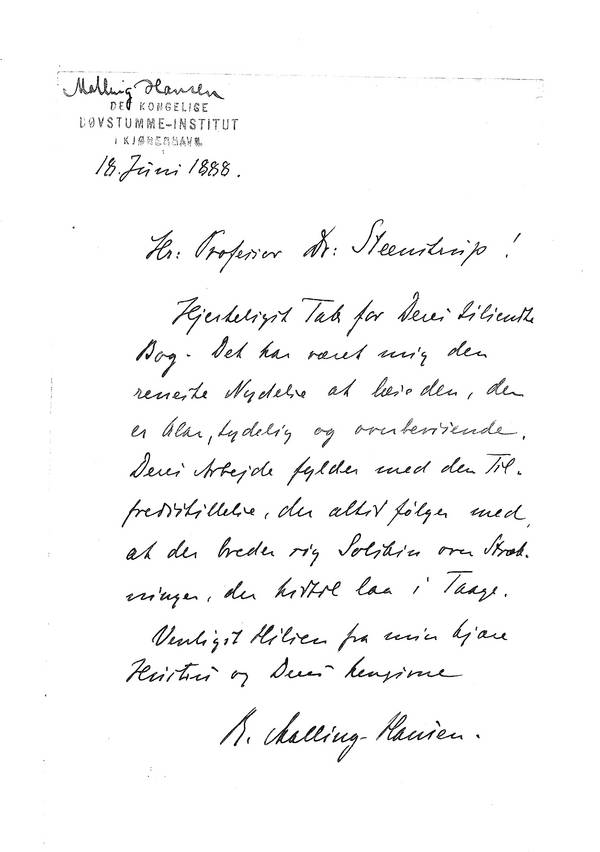 Malling Hansen
DET KONGELIGE
DØVSTUMME-INSTITUT
I KJØBENHAVN.
18. Juni 1888.
Hr: Professor Dr: Steenstrup!
Hjerteligst Tak for Deres tilsendte
Bog. Det har været mig den
reneste Nydelse at læse den, den
er klar, tydelig og overbevisende.
Deres Arbejde fylder med den Til-
fredsstillelse, der altid følger med,
at der breder sig Solskin over Stræk-
ninger, der hidtil laa i Taage.
Venligst Hilsen fra min kjære
Hustru og Deres hengivne
R. Malling-Hansen.